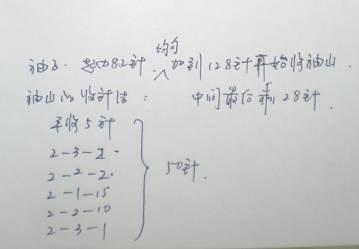 油3. 起动82针 均匀加到128针再始收油山.
油山的收针法: 中间最后剩28针.
平收5针
2-3-2
2-2-2
2-1-15
2-2-10
2-3-1
50针.